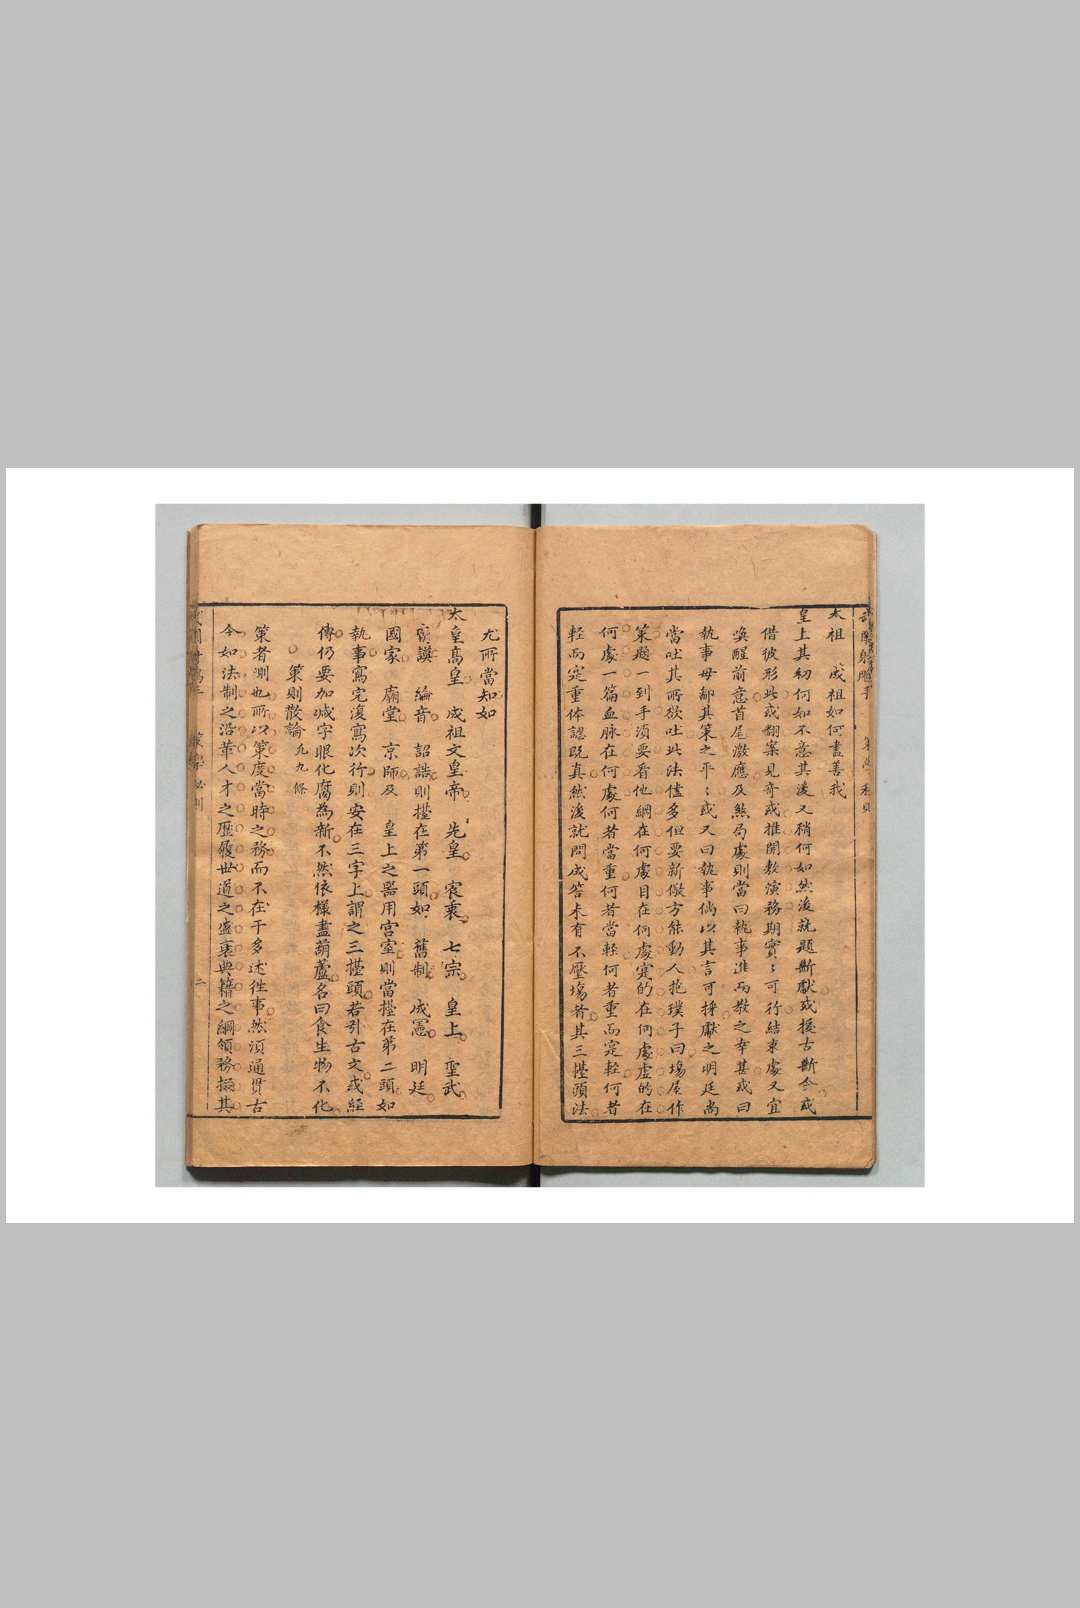 太祖 成祖如何盡善我
皇上其初何如不意其後又稍何如然後就題斷獻或援古斷今或
借彼形此或翻案見奇或推開教演務期實〻可行結束處又宜
喚醒前意首尾激應及煞局處則當曰執事進而教之幸甚或曰
執事毋鄙其策之平〻或又曰執事倘以其言可採獻之明廷尚
當吐其所欲吐此法儘多但要新儆方能動人抱璞子曰塲屋作
策題一到手須要看他綱在何處目在何處寔的在何處虛的在
何處一篇血脉在何處何者當重何者當輕何者重而寔輕何者
輕而寔重体認既真然後就問成答未有不壓塲者其三擡頭法
尤所當知如
太皇高皇 成祖文皇帝 先皇 宸衷 七宗 皇上 聖武
謨 綸音 詔誥則擡在第一頭如 舊制 成憲 明廷
國家 廟堂 京師及 皇上之器用宫室則當擡在第二頭如
執事寫完復寫次行則安在三字上謂之三擡頭若引古文或經
傳仍要加减字眼化腐為新不然依樣畫葫蘆名曰食生物不化
○策則散論九九條
策者測也所以策度當時之務而不在于多述往事然須通貫古
今如法制之沿革人才之歷履世道之盛衰典籍之綱領務撮其
二